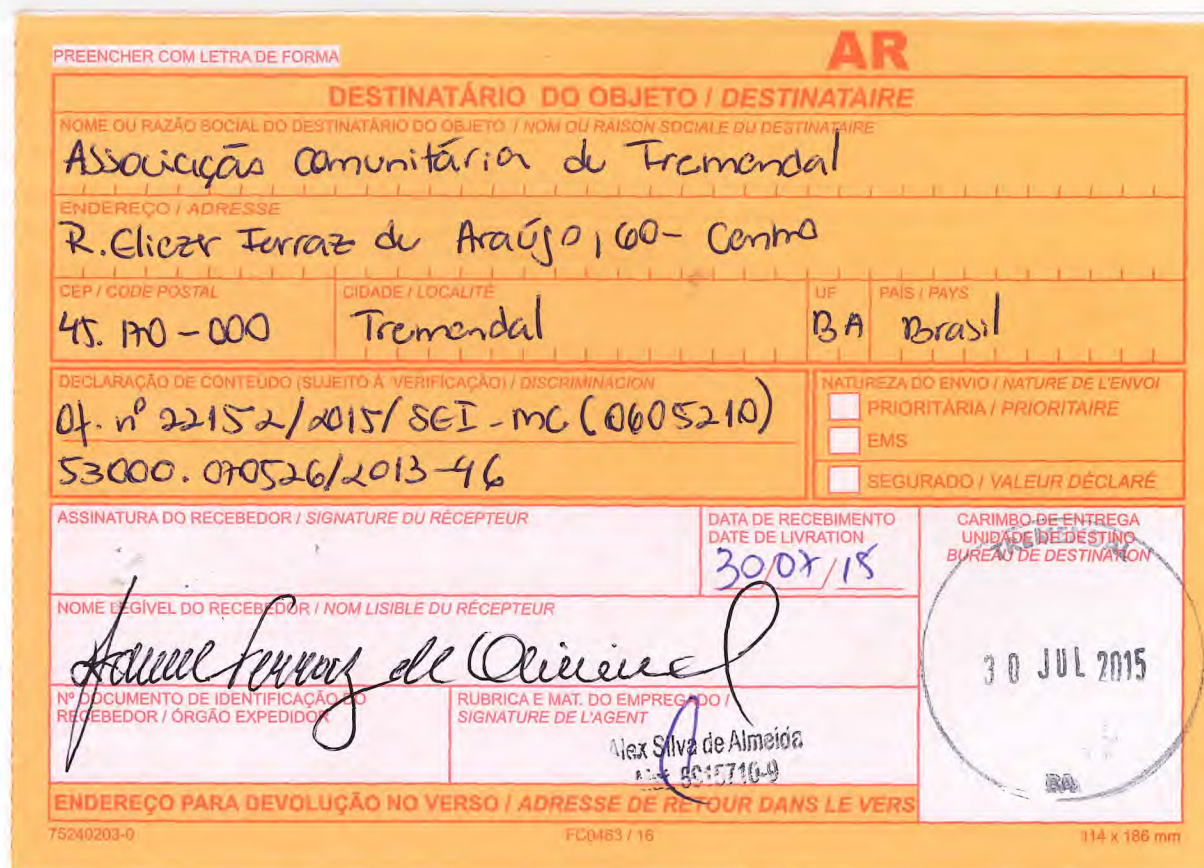 PREENCHER COM LETRA DE FORMA
AR
DESTINATÁRIO DO OBJETO / DESTINATAIRE
NOME OU RAZÃO SOCIAL DO DESTINATÁRIO DO OBJETO / NOM OU RAISON SOCIALE DU DESTINATAIRE
Associação comunitária de Tremendal
ENDEREÇO / ADRESSE
R. Eliezer Ferraz de Araújo, 60 - Centro
CEP / CODE POSTAL CIDADE / LOCALITÉ UF PAÍS / PAYS
45.170-000 Tremendal BA Brasil
DECLARAÇÃO DE CONTEÚDO (SUJEITO À VERIFICAÇÃO) / DISCRIMINACION
Of. nº 22152/2015/SEI-MC (0605210)
53000.070526/2013-46
NATUREZA DO ENVIO / NATURE DE L'ENVOI
PRIORITÁRIA / PRIORITAIRE
EMS
SEGURADO / VALEUR DÉCLARÉ
ASSINATURA DO RECEBEDOR / SIGNATURE DU RÉCEPTEUR
DATA DE RECEBIMENTO
DATE DE LIVRATION
30/07/15
CARIMBO DE ENTREGA
UNIDADE DE DESTINO
BUREAU DE DESTINATION
TREMENDAL
30 JUL 2015
BA
NOME LEGÍVEL DO RECEBEDOR / NOM LISIBLE DU RÉCEPTEUR
Ferraz de
Nº DOCUMENTO DE IDENTIFICAÇÃO DO
RECEBEDOR / ÓRGÃO EXPEDIDOR
RUBRICA E MAT. DO EMPREGADO /
SIGNATURE DE L'AGENT
Alex Silva de Almeida
ENDEREÇO PARA DEVOLUÇÃO NO VERSO / ADRESSE DE RETOUR DANS LE VERS
75240203-0 FC0463 / 16 114 x 186 mm